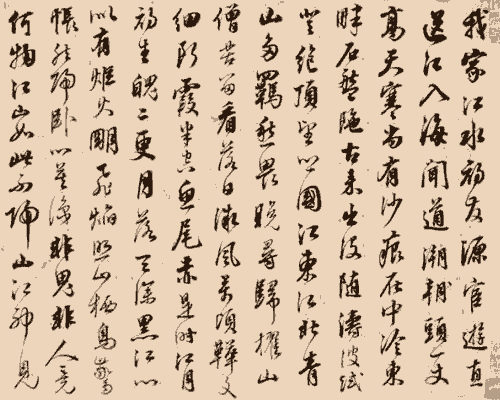 我家江水初發源宦遊直
送江入海聞道潮頭一丈
高天寒尚有沙痕在中泠南
畔石盤陁古來出沒隨濤波試
登絕頂望鄉國江南江北青
山多羈愁畏晚尋歸檝山
僧苦留看落日微風萬頃鞾文
細斷霞半空魚尾赤是時江月
初生魄二更月落天深黑江心
似有炬火明飛焰照山栖鳥驚
悵然歸臥心莫識非鬼非人竟
何物江山如此不歸山江神見